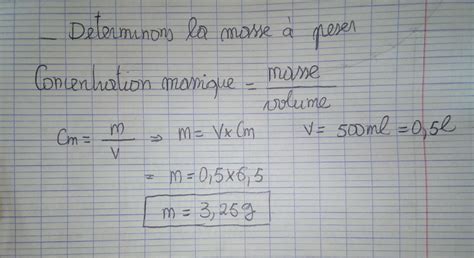 — Determinons la masse à peser
Concentration massique = masse / volume
Cm = m / V ⇒ m = V x Cm V = 500ml = 0,5l
= m = 0,5x6,5
m = 3,25g